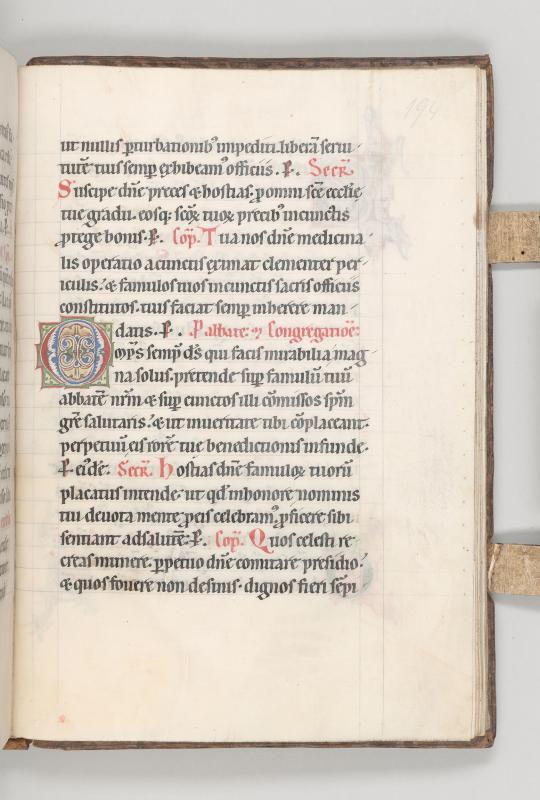 194
ut nullis ꝑturbationibꝰ impediti. liberā serui
tutē tuis semꝑ exhibeamꝰ officiis. ꝑ. Secr̄
Suscipe dn̄e preces & hostias. ꝓ omni scē ecclīe
tue gradu. eosq; scōꝝ tuoꝝ precibꝰ in cunctis
ꝓtege bonis. ꝑ. Cop̄. Tua nos dn̄e medicina
lis operatio a cunctis eximat clementer per
iculis. & famulos tuos in cunctis sacris officiis
constitutos. tuis faciat semꝑ inherere man
datis. ꝑ. P abbate: & Congregatiōe:
Omp̄s semꝑ d̄s qui facis mirabilia mag
na solus. pretende suꝑ famulū tuū
abbatē nr̄m & suꝑ cunctos illi cōmissos sp̄m
grē salutaris. & ut in ueritate tibi cōplaceant.
perpetuū eis rorē tue benedictionis infunde.
ꝑ. eūdē. Secr̄. Hostias dn̄e famuloꝝ tuoꝝ
placatus intende. ut qd̄ in honore nominis
tui deuota mente ꝓ eis celebramꝰ. ꝓficere sibi
sentiant ad salutē. ꝑ. Cop̄. Quos celesti re
creas munere. ꝑpetuo dn̄e comitare presidio.
& quos fouere non desinis. dignos fieri sēpi